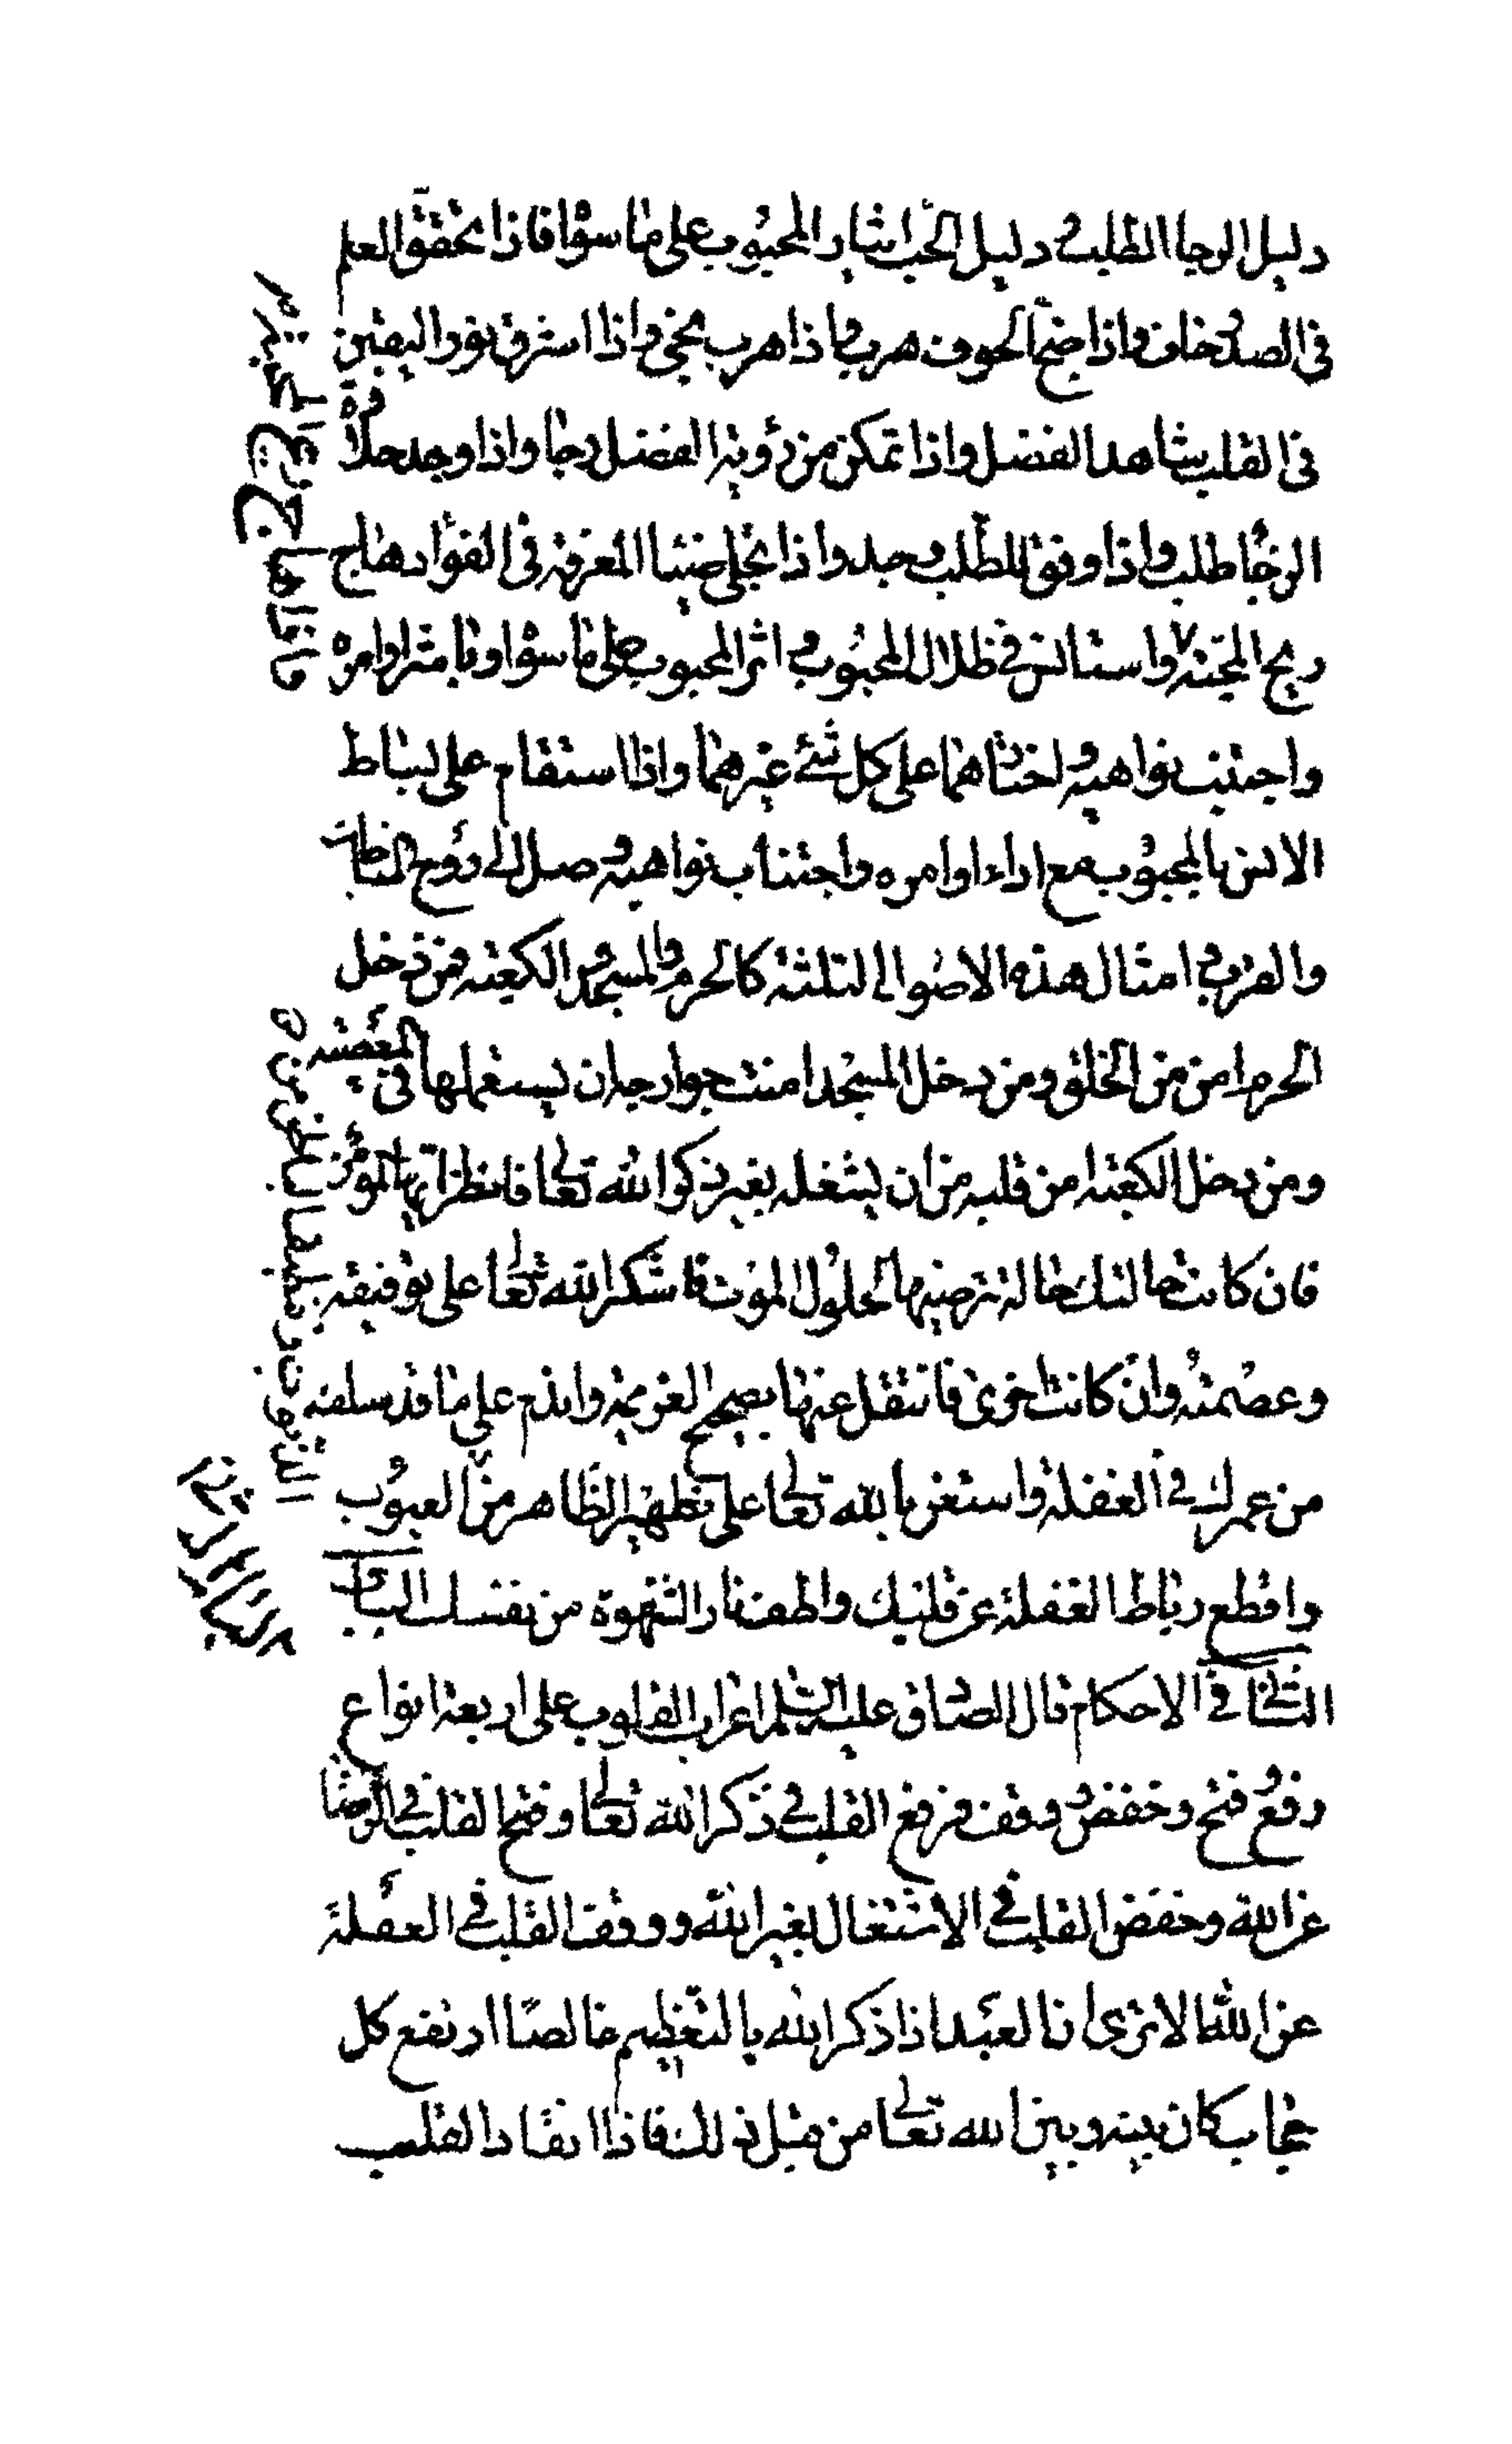 دليل الرجاء الطلب و دليل الحب ايثار المحبوب على ما سواه فاذا تحقق العلم
فى الصدر خاف واذا صح الخوف هرب واذا هرب نجى واذا اشرق نور اليقين
فى القلب شاهد الفضل واذا تمكن من رؤية الفضل رجا واذا وجد حلاوة
الرجاء طلب واذا وفق للطلب وجد واذا تجلى ضياء المعرفة فى الفؤاد هاج
ريح المحبة واستانس فى ظلال المحبوب واثر المحبوب على ما سواه وباشر اوامره
واجتنب نواهيه واختارهما على كل شئ غيرهما واذا استقام على بساط
الانس بالمحبوب مع اداء اوامره واجتناب نواهيه وصل الى روح المناجات
والقرب و امثال هذه الاصول الثلثة كالحرم والمسجد و الكعبة فمن دخل
الحرم امن من الخلق ومن دخل المسجد امنت جوارحه ان يستعملها فى المعصية
ومن دخل الكعبة امن قلبه من ان يشغله بغير ذكر الله تعالى فانظر ايها المؤمن
فان كانت حالتك حالة ترضيها لحلول الموت فاشكر الله تعالى على توفيقه
وعصمته وان كانت اخرى فانتقل عنها بصحيح العزيمة واندم على ما قد سلف
من عمرك فى الغفلة واستعن بالله تعالى على تطهير الظاهر من العيوب
واقطع رباط الغفلة عن قلبك واطف نار الشهوة من نفسك الباب
الثانى فى الاحكام قال الصادق عليه السلم اعراب القلوب على اربعة انواع
رفع و فتح و خفض و وقف فرفع القلب فى ذكر الله تعالى وفتح القلب فى الرضا
عن الله وخفض القلب فى الاشتغال بغير الله ووقف القلب فى الغفلة
عن الله الا ترى ان العبد اذا ذكر الله بالتعظيم خالصا ارتفع كل
حجاب كان بينه وبين الله تعالى من قبل ذلك فاذا انقاد القلب